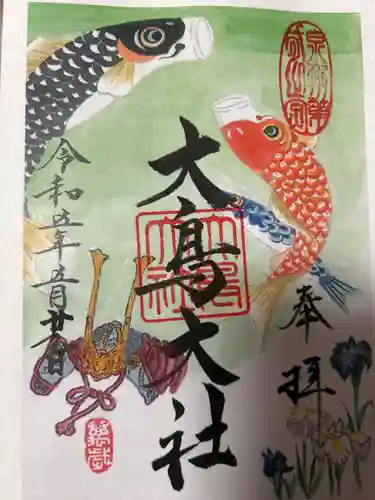 泉州第
奉拝
大鳥大社
令和五年五月廿日